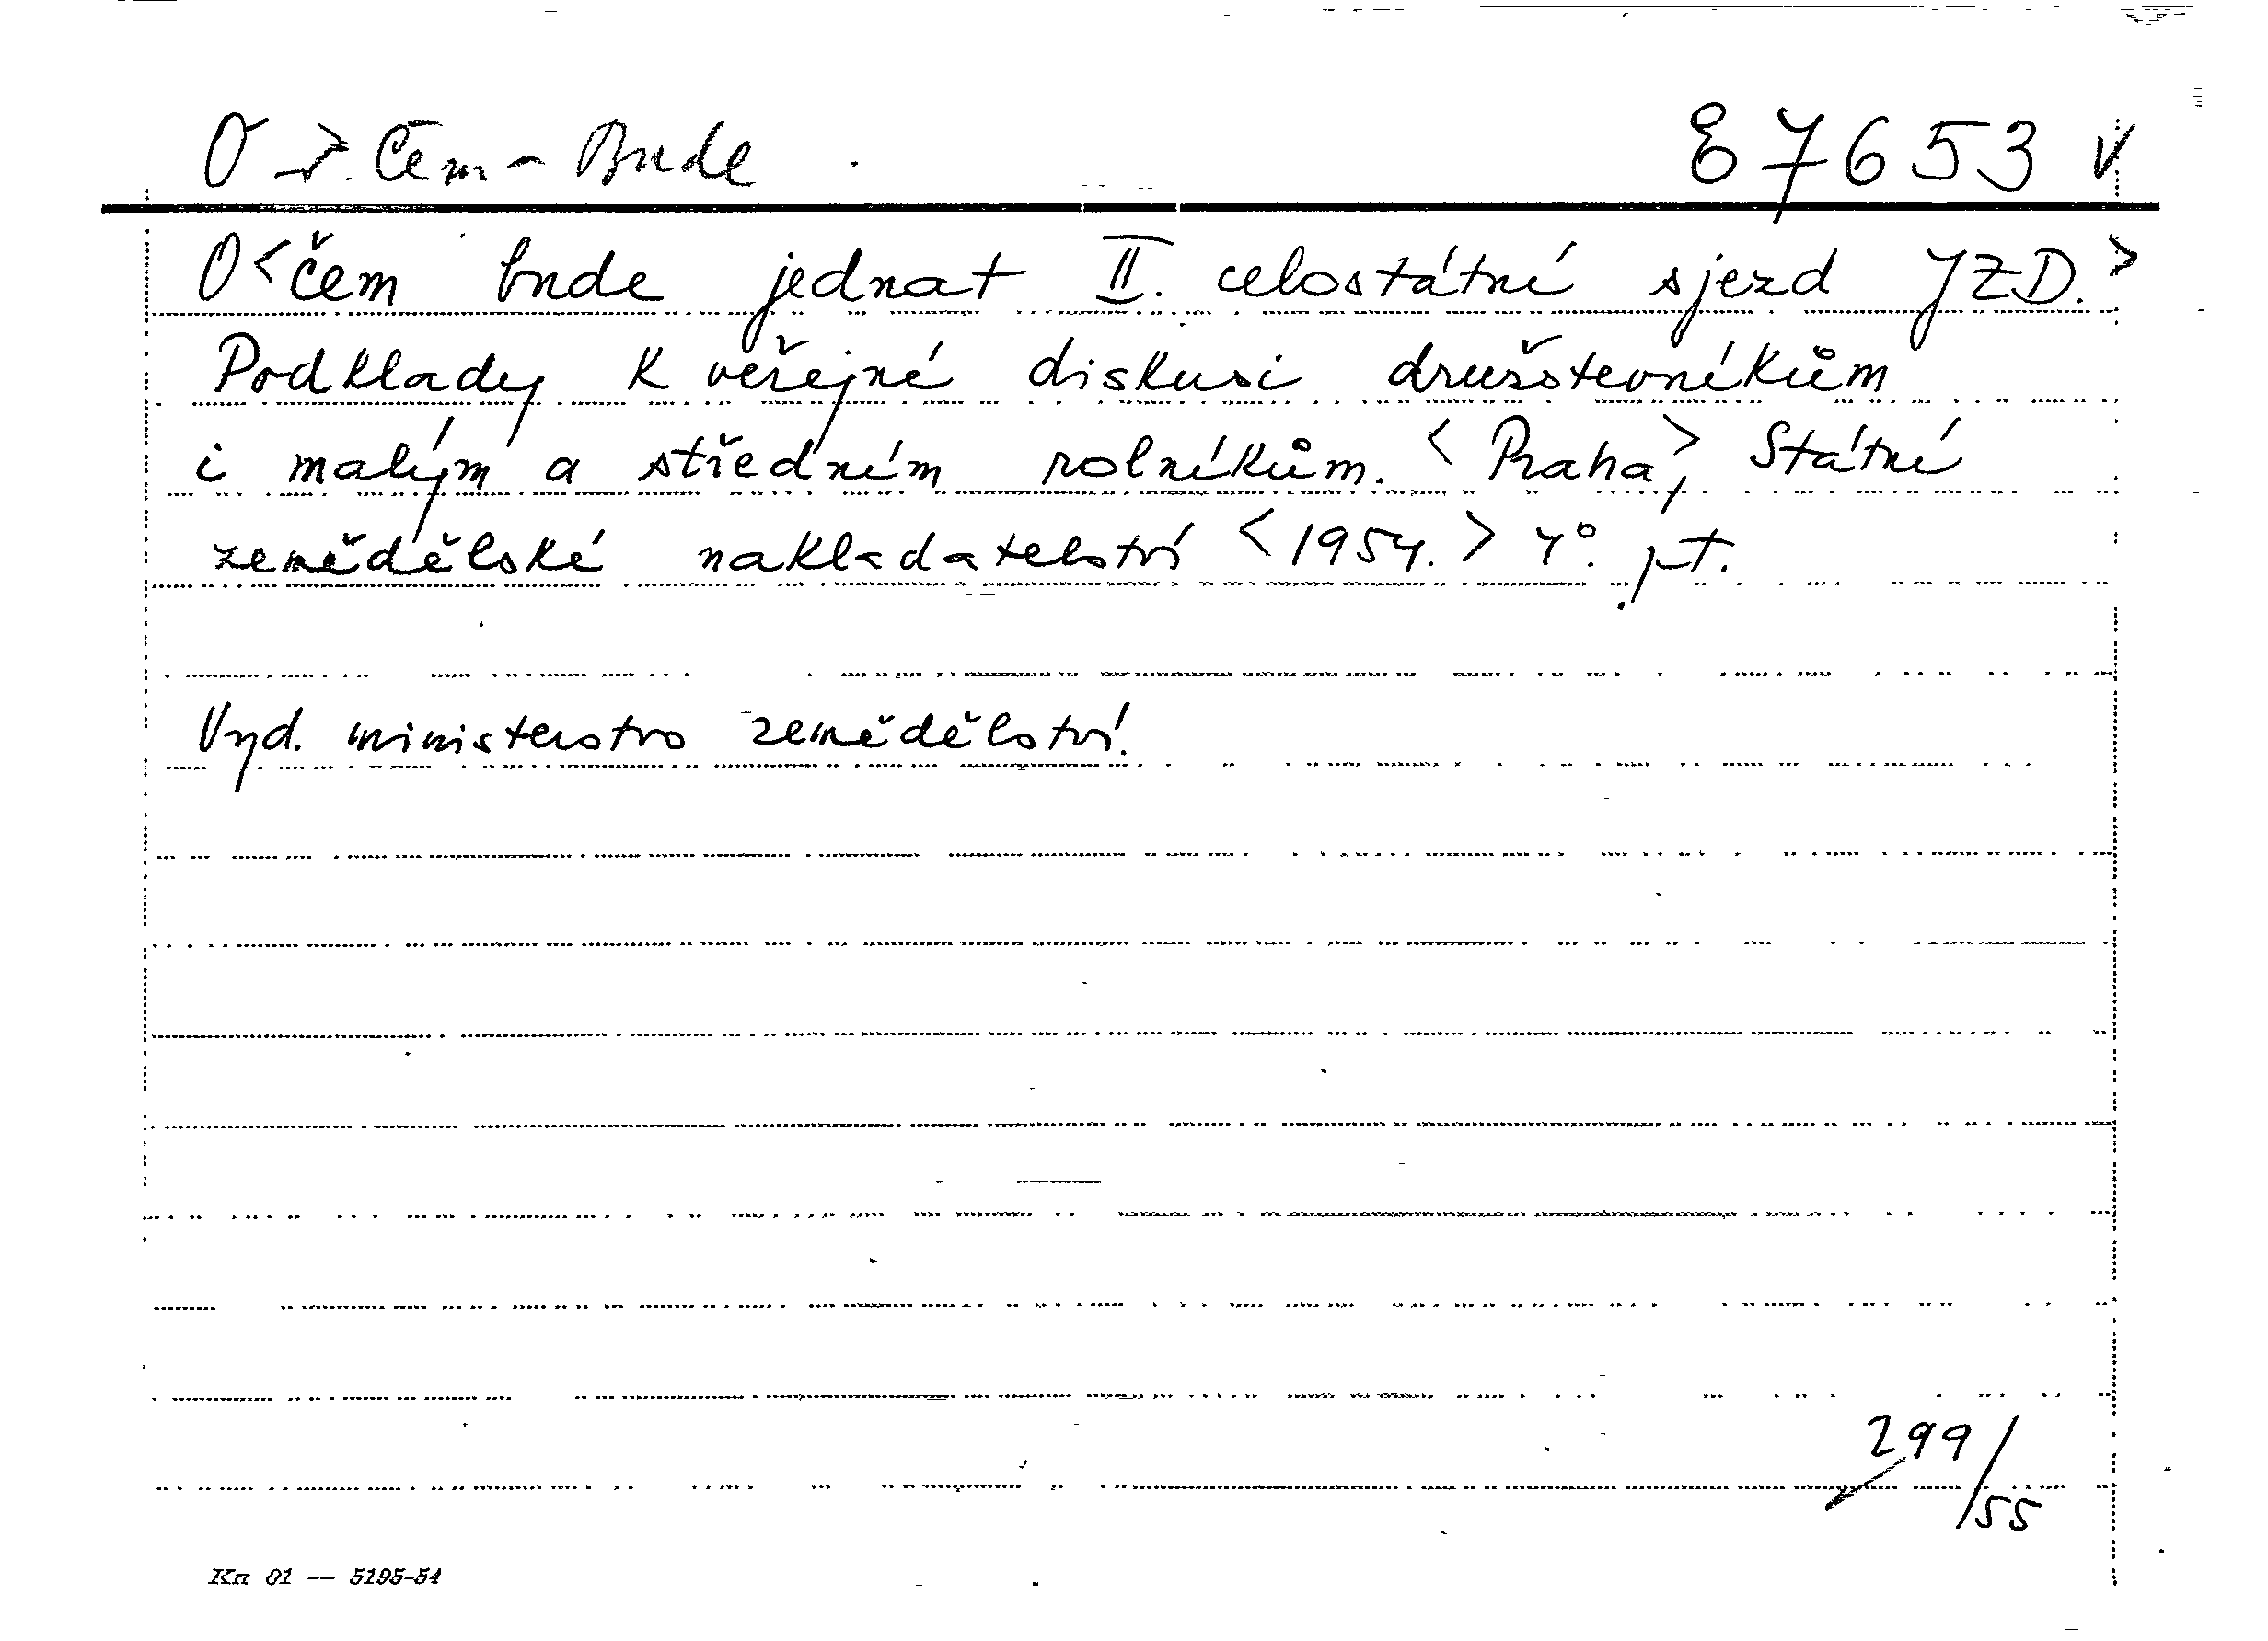 O → Čem - Bude 87653 V
O <čem bude jednat II. celostátní sjezd JZD.>
Podklady k veřejné diskusi družstevníkům
i malým a středním rolníkům. <Praha>, Státní
zemědělské nakladatelství <1954.> 4°. pt.
Vyd. ministerstvo zemědělství.
299/55
Kn 01 — 5195-54